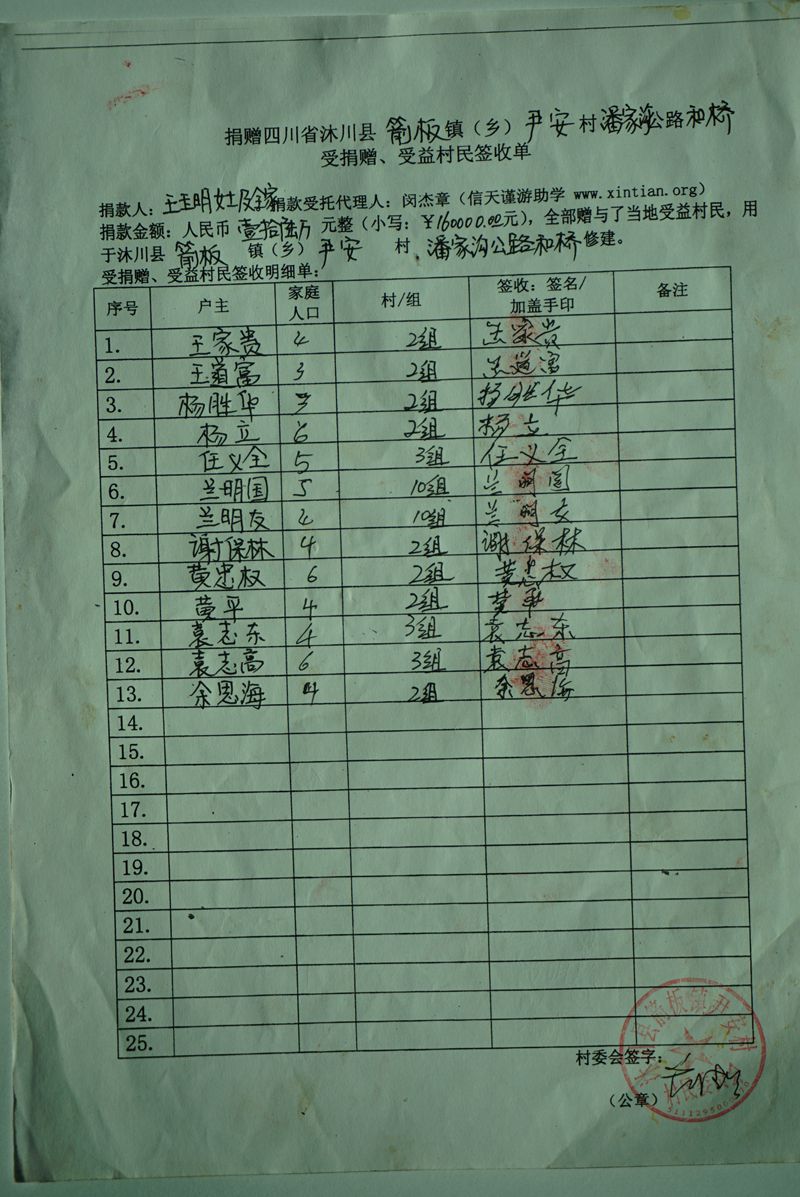 捐赠四川省沐川县 箭板 镇（乡）尹安 村 潘家沟公路和桥
受捐赠、受益村民签收单
捐款人：王玉明女士及全家 捐款受托代理人：闵杰章（信天谨游助学 www.xintian.org）
捐款金额：人民币 壹拾陆万 元整（小写：￥160000.00元），全部赠与了当地受益村民，用
于沐川县 箭板 镇（乡）尹安 村、潘家沟公路和桥修建。
受捐赠、受益村民签收明细单：
序号 户主 家庭人口 村/组 签收：签名/加盖手印 备注
1. 王家贵 4 2组 王家贵
2. 王道富 3 2组 王道富
3. 杨胜华 3 2组 杨胜华
4. 杨立 6 2组 杨立
5. 任义全 5 3组 任义全
6. 兰明国 5 10组 兰明国
7. 兰明友 4 10组 兰明友
8. 谢保林 4 2组 谢保林
9. 黄忠权 6 2组 黄忠权
10. 黄平 4 2组 黄平
11. 袁志东 4 3组 袁志东
12. 袁志高 6 3组 袁志高
13. 余恩海 4 2组 余恩海
14.
15.
16.
17.
18.
19.
20.
21.
22.
23.
24.
25.
县箭板镇尹安村
村委会签字：
（公章）